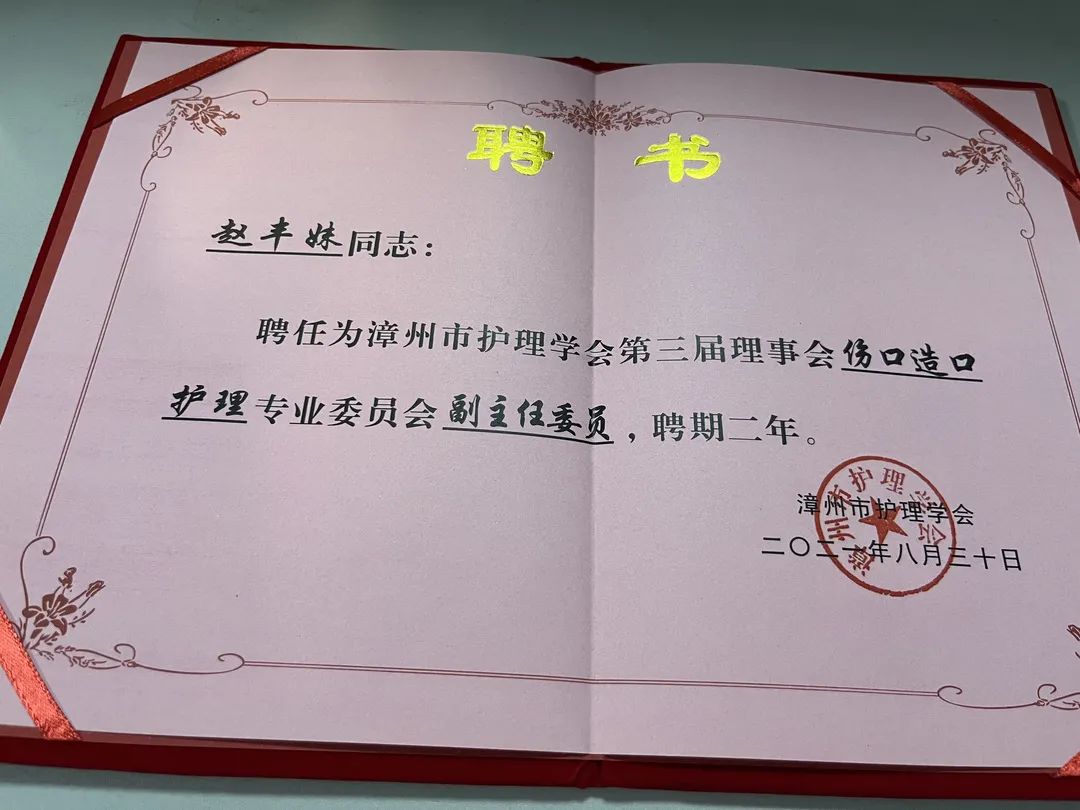 聘 书
赵丰妹同志：
聘任为漳州市护理学会第三届理事会伤口造口
护理专业委员会副主任委员，聘期二年。
漳州市护理学会
漳州市护理学会
二〇二一年八月三十日